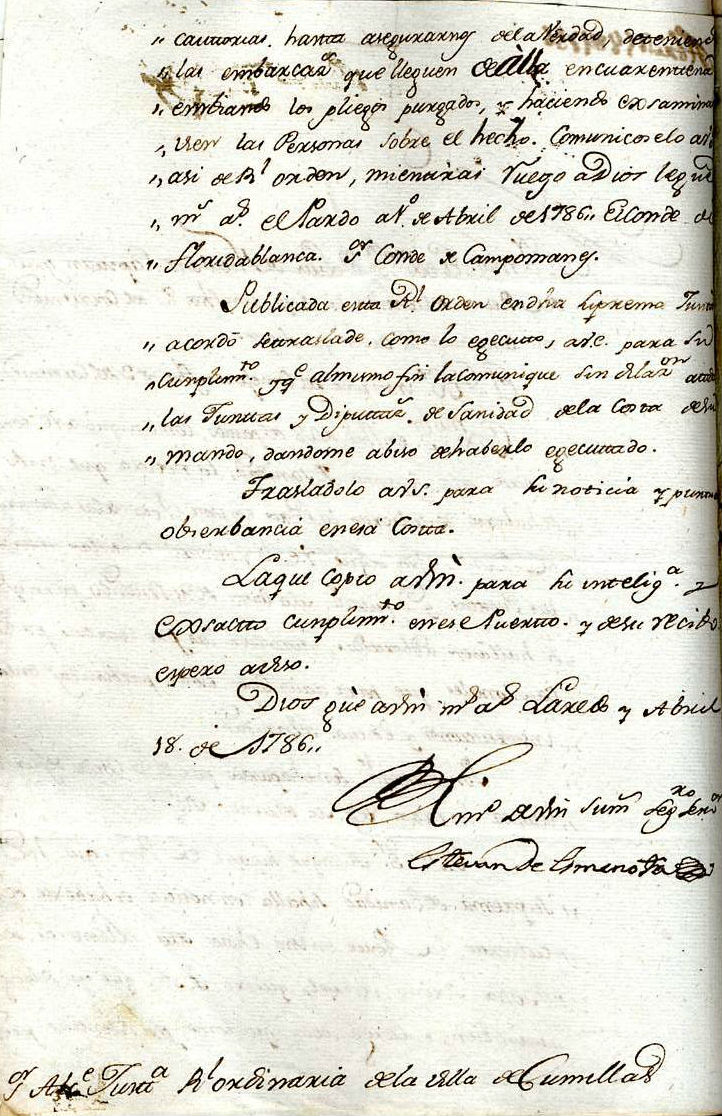 " cautorias, hasta asegurarnos de la Verdad, deteniend
" las embarcaz.s que lleguen de allà en cuarentena
" embiando los pliegos purgados, y haciendo exsamina
" bien las Personas sobre el hecho. Comunicoselo a
" asi de Rl orden, mientras Ruego a Dios le gue
" ms as. el Pardo a de Abril de 1786,, El Conde de
" floridablanca. Sor Conde de Campomanes.
Publicada esta Rl orden en dha suprema Junta
" acordò se traslade, como lo egecuto, a V.E. para su
" cunplimto. y qe al mismo fin la comunique sin dilazon a todas
" las Juntas y Diputaz.s de Sanidad de la Costa de su
" mando, dandome abiso de haberlo egecuttado.
Trasladolo a VS. para su noticia y puntu
obserbancia en esa Costta.
La que copio a Vm. para su intelig.a y
exsactto cunplimto. en ese Puertto. y de su recibo
espero aviso.
Dios gue a Vm ms as Laredo y Abril
18. de 1786,,
Blmo de Vm su mr segro seror
Estevan de
Sor Alce Junta Rl ordinaria de la villa de Cumillas